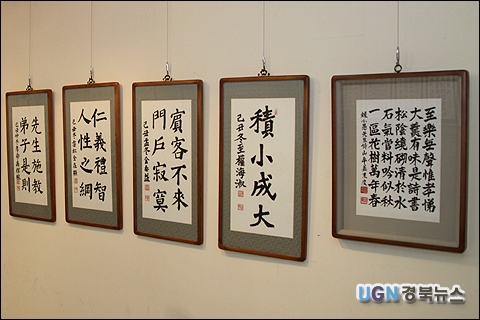 先生施教
弟子是則
仁義禮智
人性之綱
賓客不來
門戶寂寞
積小成大
己丑冬至權海淑
至樂無聲惟孝悌
大羹有味是詩書
松陰繞砌清於水
石氣當料吟似秋
一區花樹萬年春
UGN경북뉴스